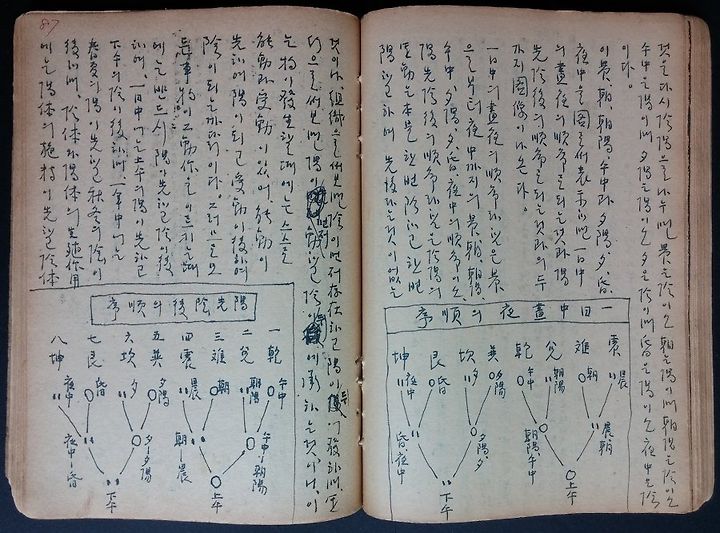 것을 다시 陰陽으로 나누며 晨은 陰이오 朝는 陽이며 朝陽은 陰이오
午中은 陽이며 夕陽은 陽이오 夕은 陰이며 昏은 陽이오 夜中은 陰
이다.
이 晨, 朝, 朝陽, 午中과 夕陽, 夕, 昏,
夜中을 圖를 써 表示하면 一日中
의 晝夜의 順序를 되는 것과 陽
先陰後의 順序를 되는 것과의 두
가지 圖像이 나온다.
一日中의 晝夜의 順序라 함은 晨
으로부터 夜中까지의 晨, 朝, 朝陽,
午中, 夕陽, 夕, 昏, 夜中의 順序이오
陽先陰後의 順序라 함은 陰陽의
運動은 本是 한번 陰하고 한번
하며 先後라는 것이 없는
一日中晝夜의順序
震 離 兌 乾 巽 坎 艮 坤
晨 朝 朝陽 午中 夕陽 夕 昏 夜中
晨朝 朝陽午中 夕陽, 夕 昏, 夜中
上午 下午
87
것이나 組織으로 써 보면 陰이 먼저 存在하고 陽이 發하며 또
으로 써 보면 陽이 動하고 陰이 에 하는 것이나, 이
는 物이 發生할 때에는 스스로
能動과 受動이 있어, 能動이
先하여 陽이 되고 受動이 後하여
陰이 되는 까닭이다. 그러므로 모
든 事物이 工作을 이르키는 때
에는 반드시 陽이 先하고 陰이 後
하며, 一日中에는 上午의 陽이 先하고
下午의 陰이 後하며 一年中에는
春夏의 陽이 先하고 秋冬의 陰이
後하며, 陰体와 陽体의 生殖作用
에는 陽体의 施精이 先하고 陰体
陽先陰後의順序
一乾 二兌 三離 四震 五巽 六坎 七艮 八坤
午中 朝陽 朝 晨 夕陽 夕 昏 夜中
午中-朝陽 朝-晨 夕-夕陽 夜中-昏
上午 下午